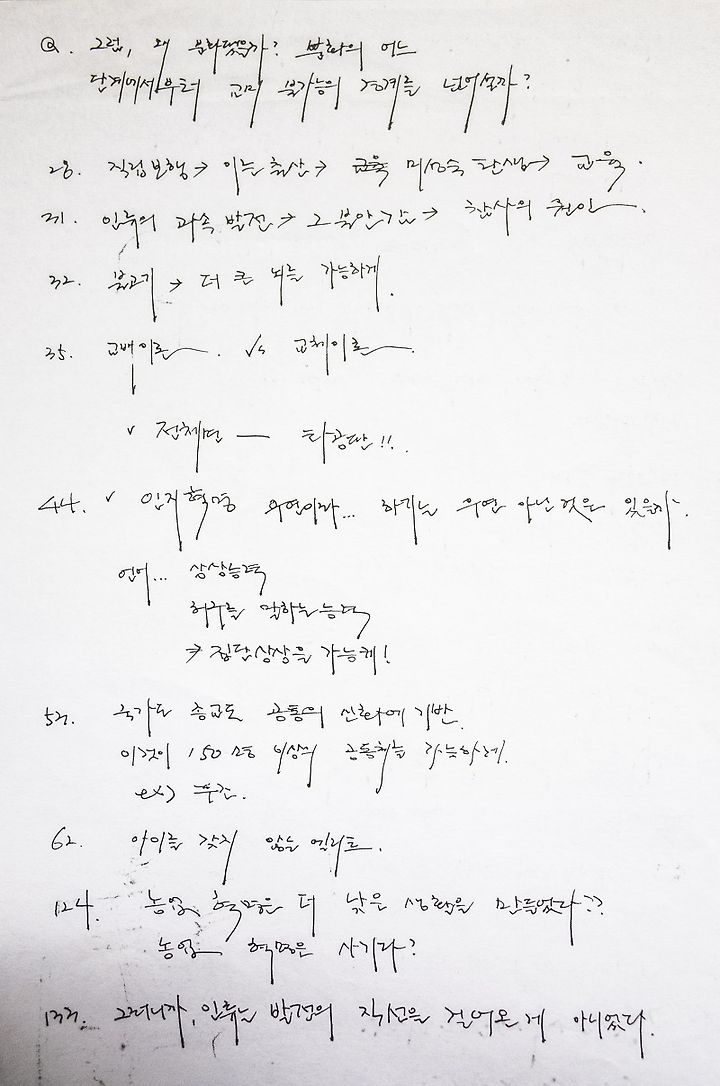 Q. 그럼, 왜 분화됐을까? 분화의 어느
단계에서부터 교미 불가능의 경계를 넘어설까?
28. 직립보행 → 이른 출산 → 미성숙 탄생 → 교육.
31. 인류의 과속 발전 → 그 불안감 → 참사의 원인.
32. 불고기 → 더 큰 뇌를 가능하게.
35. 교배이론. vs 교체이론.
v 전체면 — 타공판!!.
44. v 인지혁명 우연이라... 하기는 우연 아닌 것은 있을까.
언어... 상상능력
허구를 말하는 능력
→ 집단상상을 가능케!
53. 국가도 종교도 공통의 신화에 기반.
이것이 150명 이상의 공동체를 가능하게.
ex) 푸조.
62. 아이를 갖지 않는 엘리트.
124. 농업 혁명은 더 낮은 생활을 만들었다??
농업 혁명은 사기다?
133. 그러니까, 인류는 발전의 직선을 걸어온 게 아니었다.